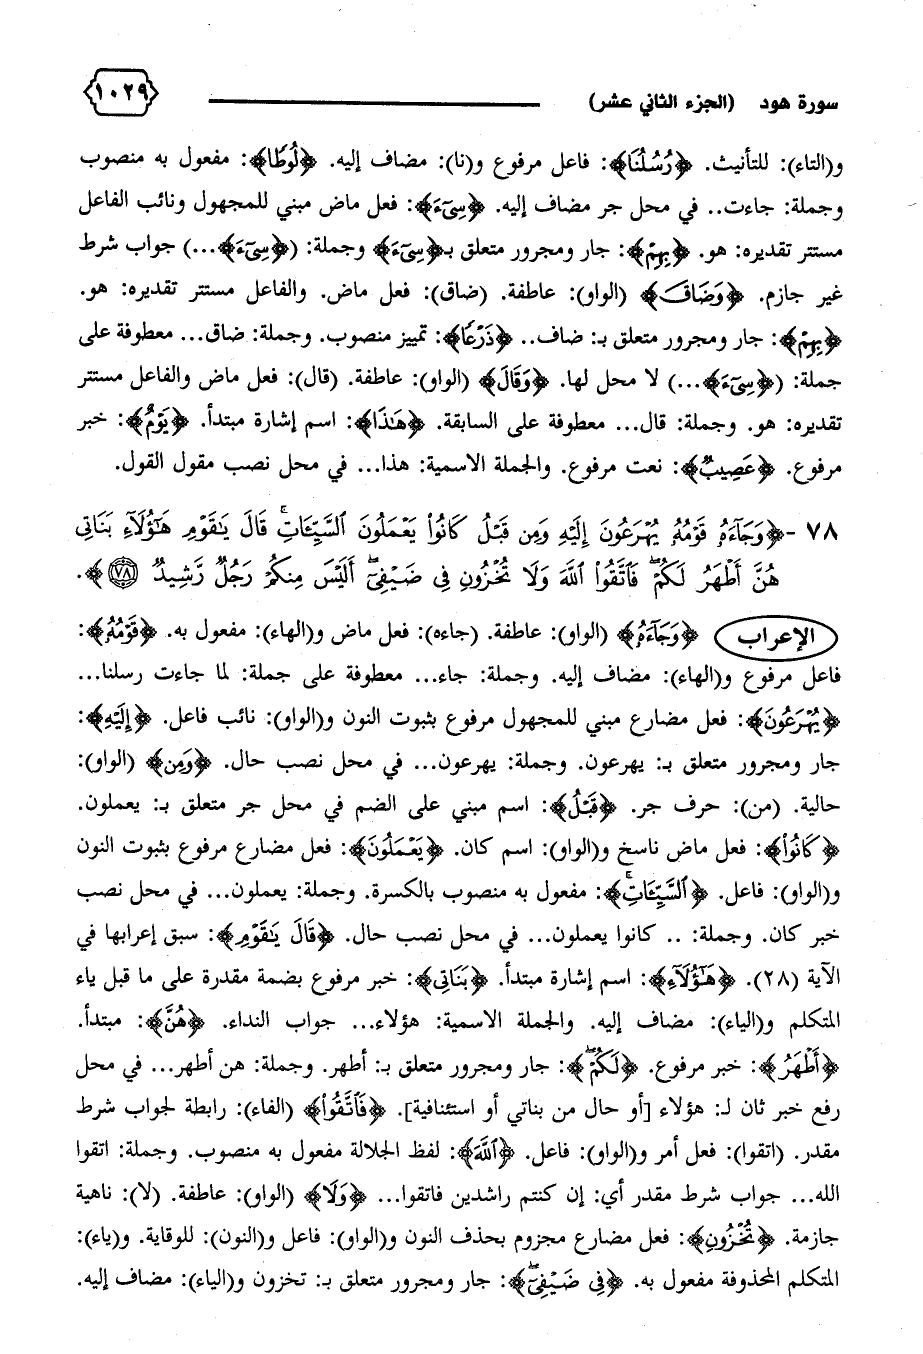 سورة هود (الجزء الثاني عشر) ١٠٢٩
و(التاء): للتأنيث. ﴿رُسُلُنَا﴾: فاعل مرفوع و(نا): مضاف إليه. ﴿لُوطًا﴾: مفعول به منصوب
وجملة: جاءت.. في محل جر مضاف إليه. ﴿سِيٓءَ﴾: فعل ماض مبني للمجهول ونائب الفاعل
مستتر تقديره: هو. ﴿بِهِمْ﴾: جار ومجرور متعلق بـ﴿سِيٓءَ﴾ وجملة: (﴿سِيٓءَ﴾...) جواب شرط
غير جازم. ﴿وَضَاقَ﴾ (الواو): عاطفة. (ضاق): فعل ماض. والفاعل مستتر تقديره: هو.
﴿بِهِمْ﴾: جار ومجرور متعلق بـ: ضاف.. ﴿ذَرْعًا﴾: تمييز منصوب. وجملة: ضاق... معطوفة على
جملة: (﴿سِيٓءَ﴾...) لا محل لها. ﴿وَقَالَ﴾ (الواو): عاطفة. (قال): فعل ماض والفاعل مستتر
تقديره: هو. وجملة: قال... معطوفة على السابقة. ﴿هَٰذَا﴾: اسم إشارة مبتدأ. ﴿يَوْمٌ﴾: خبر
مرفوع. ﴿عَصِيبٌ﴾: نعت مرفوع. والجملة الاسمية: هذا... في محل نصب مقول القول.
٧٨ -﴿وَجَآءَهُۥ قَوْمُهُۥ يُهْرَعُونَ إِلَيْهِ وَمِن قَبْلُ كَانُوا۟ يَعْمَلُونَ ٱلسَّيِّـَٔاتِ ۚ قَالَ يَٰقَوْمِ هَٰٓؤُلَآءِ بَنَاتِى
هُنَّ أَطْهَرُ لَكُمْ ۖ فَٱتَّقُوا۟ ٱللَّهَ وَلَا تُخْزُونِ فِى ضَيْفِىٓ ۖ أَلَيْسَ مِنكُمْ رَجُلٌ رَّشِيدٌ ٧٨﴾.
الإعراب ﴿وَجَآءَهُۥ﴾ (الواو): عاطفة. (جاءه): فعل ماض و(الهاء): مفعول به. ﴿قَوْمُهُۥ﴾:
فاعل مرفوع و(الهاء): مضاف إليه. وجملة: جاء... معطوفة على جملة: لما جاءت رسلنا...
﴿يُهْرَعُونَ﴾: فعل مضارع مبني للمجهول مرفوع بثبوت النون و(الواو): نائب فاعل. ﴿إِلَيْهِ﴾:
جار ومجرور متعلق بـ: يهرعون. وجملة: يهرعون... في محل نصب حال. ﴿وَمِن﴾ (الواو):
حالية. (من): حرف جر. ﴿قَبْلُ﴾: اسم مبني على الضم في محل جر متعلق بـ: يعملون.
﴿كَانُوا۟﴾: فعل ماض ناسخ و(الواو): اسم كان. ﴿يَعْمَلُونَ﴾: فعل مضارع مرفوع بثبوت النون
و(الواو): فاعل. ﴿ٱلسَّيِّـَٔاتِ ۚ﴾: مفعول به منصوب بالكسرة. وجملة: يعملون... في محل نصب
خبر كان. وجملة: .. كانوا يعملون... في محل نصب حال. ﴿قَالَ يَٰقَوْمِ﴾: سبق إعرابها في
الآية (٢٨). ﴿هَٰٓؤُلَآءِ﴾: اسم إشارة مبتدأ. ﴿بَنَاتِى﴾: خبر مرفوع بضمة مقدرة على ما قبل ياء
المتكلم و(الياء): مضاف إليه. والجملة الاسمية: هؤلاء... جواب النداء. ﴿هُنَّ﴾: مبتدأ.
﴿أَطْهَرُ﴾: خبر مرفوع. ﴿لَكُمْ ۖ﴾: جار ومجرور متعلق بـ: أطهر. وجملة: هن أطهر... في محل
رفع خبر ثان لـ: هؤلاء [أو حال من بناتي أو استئنافية]. ﴿فَٱتَّقُوا۟﴾ (الفاء): رابطة لجواب شرط
مقدر. (اتقوا): فعل أمر و(الواو): فاعل. ﴿ٱللَّهَ﴾: لفظ الجلالة مفعول به منصوب. وجملة: اتقوا
الله... جواب شرط مقدر أي: إن كنتم راشدين فاتقوا... ﴿وَلَا﴾ (الواو): عاطفة. (لا): ناهية
جازمة. ﴿تُخْزُونِ﴾: فعل مضارع مجزوم بحذف النون و(الواو): فاعل و(النون): للوقاية. و(ياء):
المتكلم المحذوفة مفعول به. ﴿فِى ضَيْفِىٓ ۖ﴾: جار ومجرور متعلق بـ: تخزون و(الياء): مضاف إليه.